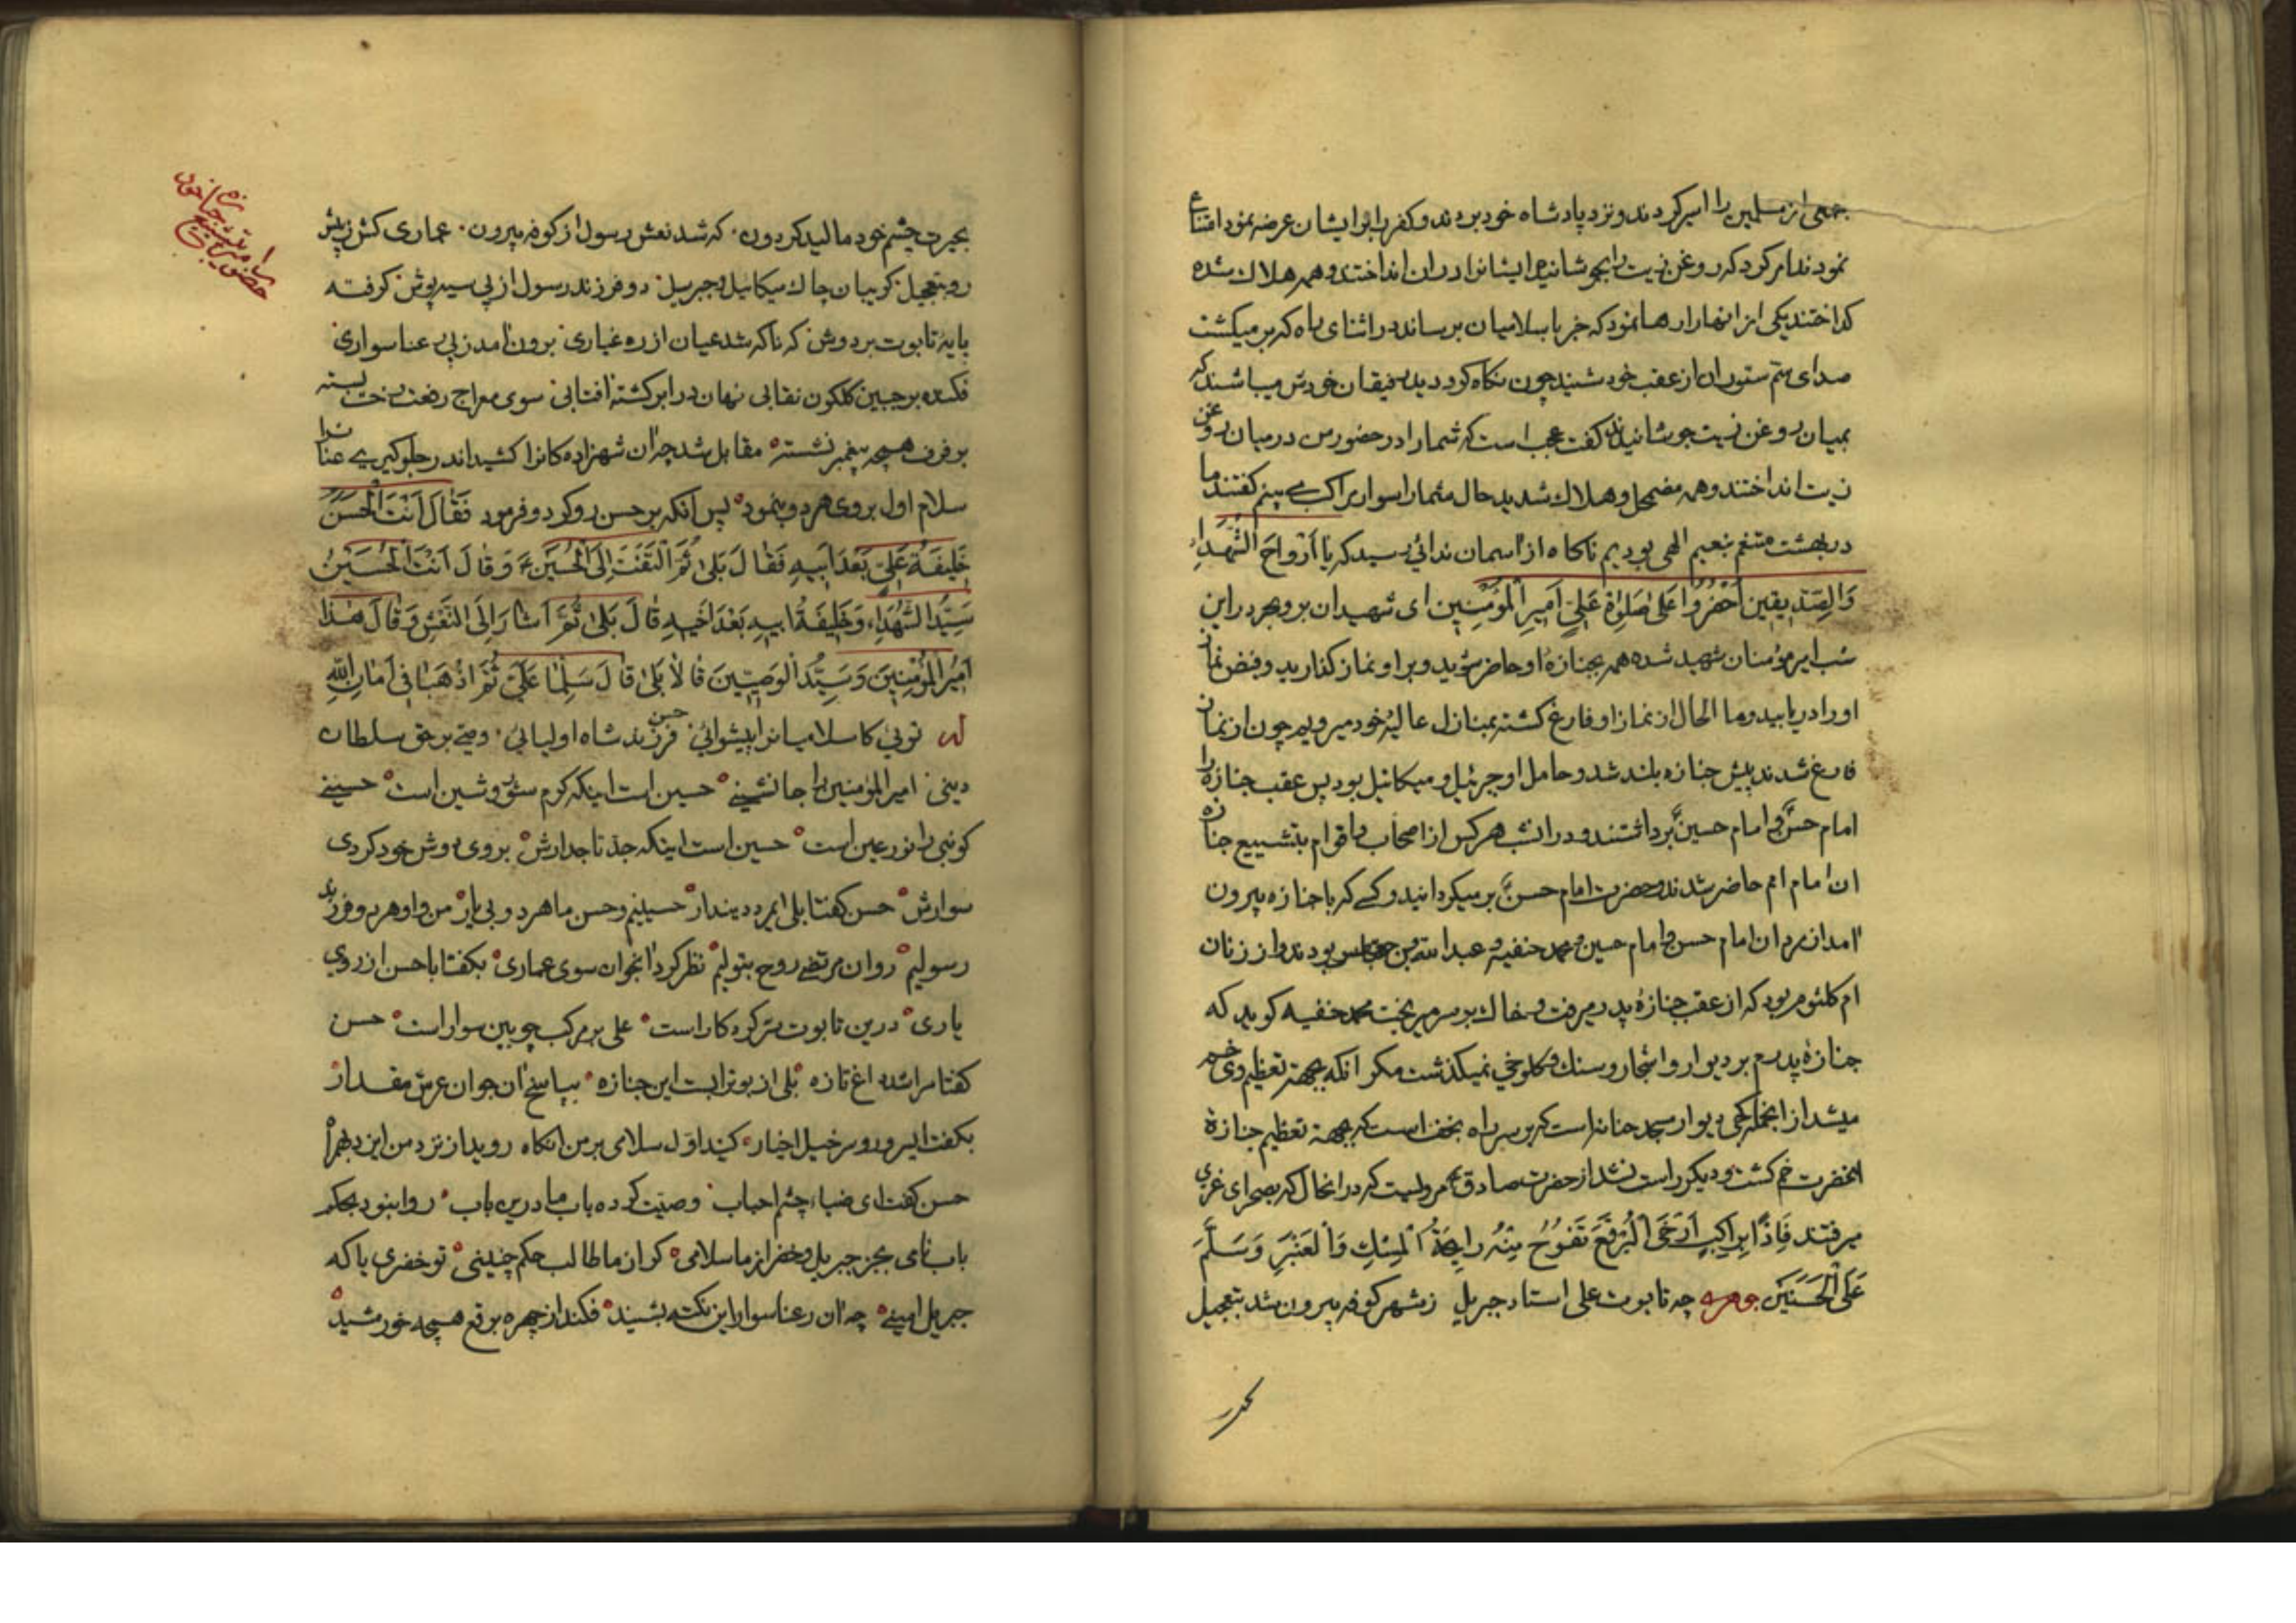 جمعی از مسلمین را اسیر کردند و نزد پادشاه خود بردند و کفر را بر ایشان عرضه نمود امتناع
نمودند امر کرد که روغن زیت را بجوشانیدند ایشانرا دران انداختند و همه هلاک شده
کداختند یکی از انها را رها نمود که خبر باسلامیان برساند در اثنای راه که بر میکشت
صدای سم ستوران از عقب خود شنید چون نکاه کرد دید رفیقان خودش میباشند که
بمیان روغن زیت جوشانیدند کفت عجب است که شما را در حضور من در میان روغن
زیت انداختند و همه مضمحل و هلاک شدید حال شما را سوار براکب می بینم کفتند ما
در بهشت متنعم بنعیم الهی بودیم ناکاه از آسمان ندائی رسید که یا اَرْواحَ الشُّهَداءِ
وَالصِّدّیقینَ اُحْضُرُوا عَلیٰ صَلوٰةِ عَلِیٍّ اَمیرِ الْمُؤْمِنینَ ای شهیدان بر و بحر در این
شب امیر مؤمنان شهید شده همه بجنازهٔ او حاضر شوید و بر او نماز کذارید و فیض نماز
او را دریابید و ما الحال از نماز او فارغ کشته بمنازل عالیهٔ خود میرویم چون از نماز
فارغ شدند پیش جنازه بلند شد و حامل او جبرئیل و میکائیل بود پس عقب جنازه را
امام حسن و امام حسین برداشتند و در انشب هر کس از اصحاب و اقوام بتشییع جنازه
ان امام امم حاضر شدند و حضرت امام حسن بر میکردانید و کسی که با جنازه بیرون
آمد از مردان امام حسن و امام حسین و محمد حنفیه و عبدالله بن عباس بودند و از زنان
ام کلثوم بود که از عقب جنازهٔ پدر میرفت و خاک بر سر میریخت محمد حنفیه کوید که
جنازهٔ پدرم بر دیوار و اشجار و سنک و کلوخی نمیکذشت مکر انکه بجهة تعظیم وی خم
میشد از انجمله کجی دیوار مسجد حنانه است که بر سر راه نجف است که بجهة تعظیم جنازهٔ
انحضرت خم کشت و دیکر راست نشد از حضرت صادق مرویست که در انحال که بصحرای غری
میرفتند فَاِذاً بِراکِبٍ اَرْخَی الْبُرْقَعَ تَفُوحُ مِنْهُ رایِحَةُ الْمِسْکِ وَالْعَنْبَرِ وَسَلَّمَ
عَلَی الْحَسَنَیْنِ جوهری چه تابوت علی استاد جبریل زشهر کوفه بیرون شد بتعجیل
بحیرت چشم خود مالید کردون که شد نعش رسول از کوفه بیرون عماری کش زپیش
رو بتعجیل کریبان چاک میکائیل و جبریل دو فرزند رسول از پی سیه پوش کرفته
پایهٔ تابوت بر دوش که ناکه شد عیان از ره غباری برون آمد زپی رعنا سواری
فکنده بر جبین کلکون نقابی نهان در ابر کشته آفتابی سوی معراج رفعت رخت بسته
بر فرف همچه پیغمبر نشسته مقابل شد چه آن شهزاده کانرا کشید اندر جلوکیری عنانرا
سلام اول بروی هر دو بنمود پس آنکه بر حسن رو کرد و فرمود فَقالَ اَنْتَ الْحَسَنُ
خَلیفَةُ عَلِیٍّ بَعْدَ اَبیهِ فَقالَ بَلیٰ ثُمَّ الْتَفَتَ اِلَی الْحُسَیْنِ وَقالَ اَنْتَ الْحُسَیْنُ
سَیِّدُ الشُّهَداءِ وَخَلیفَةُ اَبیهِ بَعْدَ اَخیهِ قالَ بَلیٰ ثُمَّ اَشارَ اِلَی النَّعْشِ وَقالَ هٰذا
اَمیرُ الْمُؤْمِنینَ وَسَیِّدُ الْوَصِیّینَ قالا بَلیٰ قالَ سَلِّما عَلَیَّ ثُمَّ اذْهَبا فی اَمانِ اللّٰهِ
له توئی کاسلامیانرا پیشوائی حسن فرزند شاه اولیائی وصی بر حق سلطان
دینی امیر المؤمنین را جانشینی حسین است اینکه کرم شور و شین است حسینی
کو نبی را نور عین است حسین است اینکه جد تاجدارش بروی دوش خود کردی
سوارش حسن کفتا بلی ایمرد دیندار حسینیم و حسن ما هر دو بی یار من و او هر دو فرزند
رسولیم روان مرتضی روح بتولیم نظر کرد آنجوان سوی عماری بکفتا با حسن از روی
یاری درین تابوت سر کردکار است علی بر مرکب چوبین سوار است حسن
کفتا مرا شد داغ تازه بلی از بوتراب است این جنازه بپاسخ آن جوان عرش مقدار
بکفت ایسرور و سرخیل اخیار کنید اول سلامی بر من انکاه روید از نزد من این دم بهمراه
حسن کفت ای ضیاء چشم احباب وصیت کرده باب ما درین باب روا نبود بحکم
باب نامی بجز جبریل و خضر از ما سلامی کر از ما طالب حکم چنینی تو خضری یا که
جبریل امینی چه ان رعنا سوار این نکته بشنید فکند از چهره برقع همچه خورشید